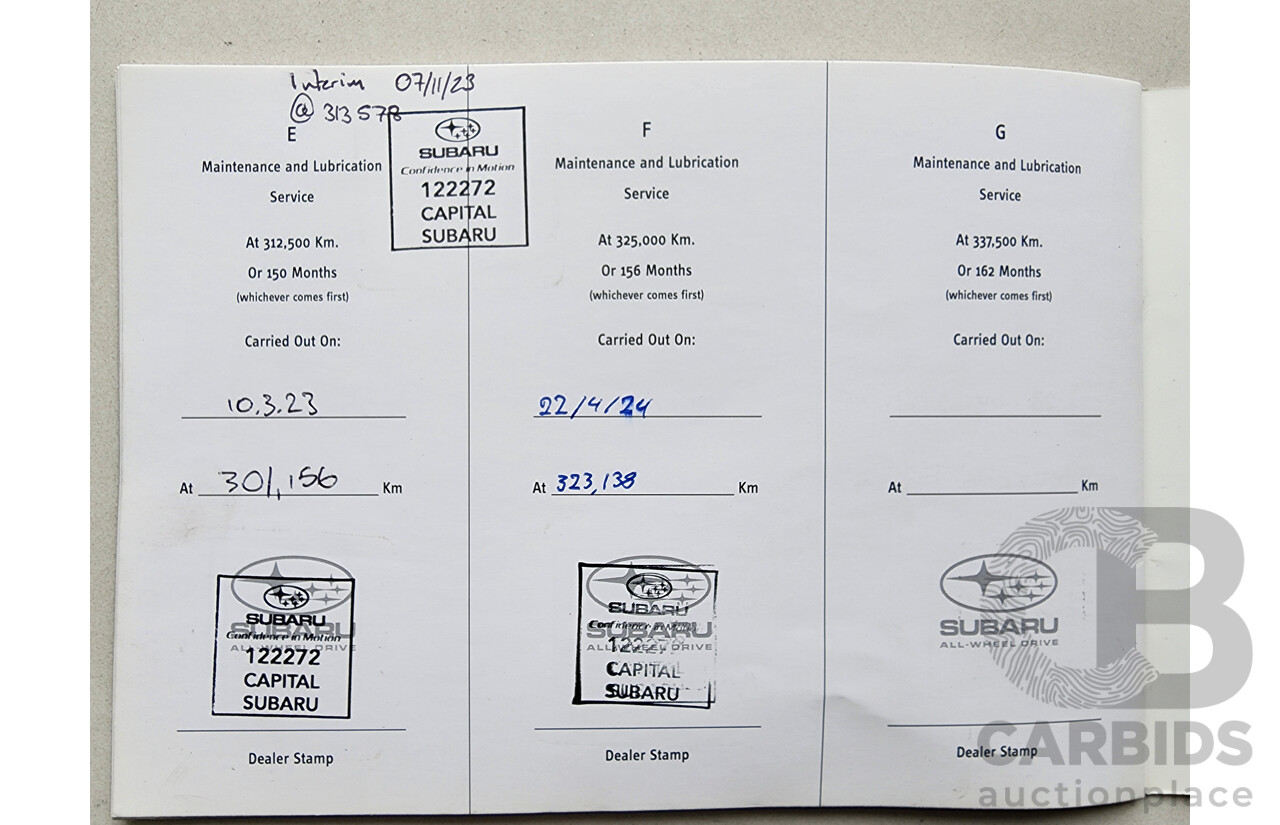 Interim 07/11/23
@ 313578
SUBARU
Confidence in Motion
122272
CAPITAL
SUBARU
E
Maintenance and Lubrication
Service
At 312,500 Km.
Or 150 Months
(whichever comes first)
Carried Out On:
10.3.23
At 301,156 Km
SUBARU
Confidence in Motion
SUBARU
ALL-WHEEL DRIVE
122272
CAPITAL
SUBARU
Dealer Stamp
F
Maintenance and Lubrication
Service
At 325,000 Km.
Or 156 Months
(whichever comes first)
Carried Out On:
22/4/24
At 323,138 Km
SUBARU
Confidence in Motion
SUBARU
ALL-WHEEL DRIVE
CAPITAL
SUBARU
Dealer Stamp
G
Maintenance and Lubrication
Service
At 337,500 Km.
Or 162 Months
(whichever comes first)
Carried Out On:
At Km
SUBARU
ALL-WHEEL DRIVE
Dealer Stamp
CARBIDS
auctionplace